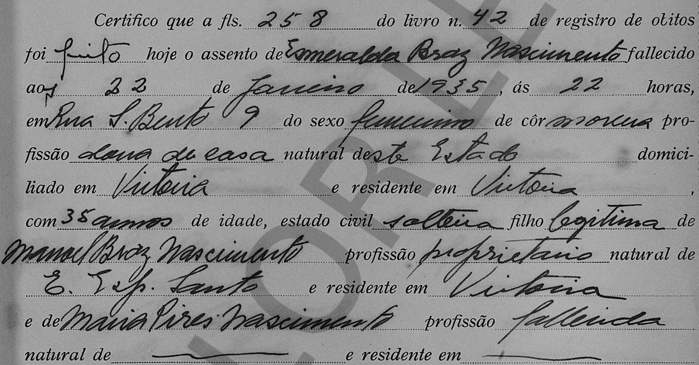 Certifico que a fls. 258 do livro n. 42 de registro de obitos
foi feito hoje o assento de Esmeralda Braz Nascimento fallecido
aos 22 de Janeiro de 1935, ás 22 horas,
em Rua S. Bento 9 do sexo femenino de côr morena pro-
fissão dona de casa natural deste Estado domici-
liado em Victoria e residente em Victoria
com 35 annos de idade, estado civil solteira filho legitima de
Manoel Braz Nascimento profissão proprietario natural de
E. Esp. Santo e residente em Victoria
e de Maria Pires Nascimento profissão fallecida
natural de e residente em